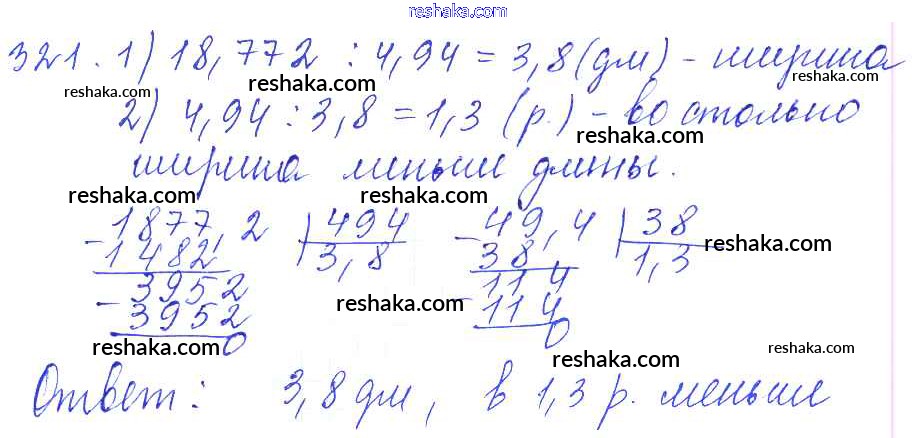 reshaka.com
321. 1) 18,772 : 4,94 = 3,8 (дм) - ширина
reshaka.com reshaka.com reshaka.com
2) 4,94 : 3,8 = 1,3 (р.) - во стольно
ширина меньше длины.
reshaka.com reshaka.com reshaka.com
- 1877,2 | 494 - 49,4 | 38
1482 3,8 38 1,3 reshaka.com
- 3952 114
3952 reshaka.com - 114
0 0
reshaka.com reshaka.com reshaka.com
Ответ: 3,8 дм, в 1,3 р. меньше